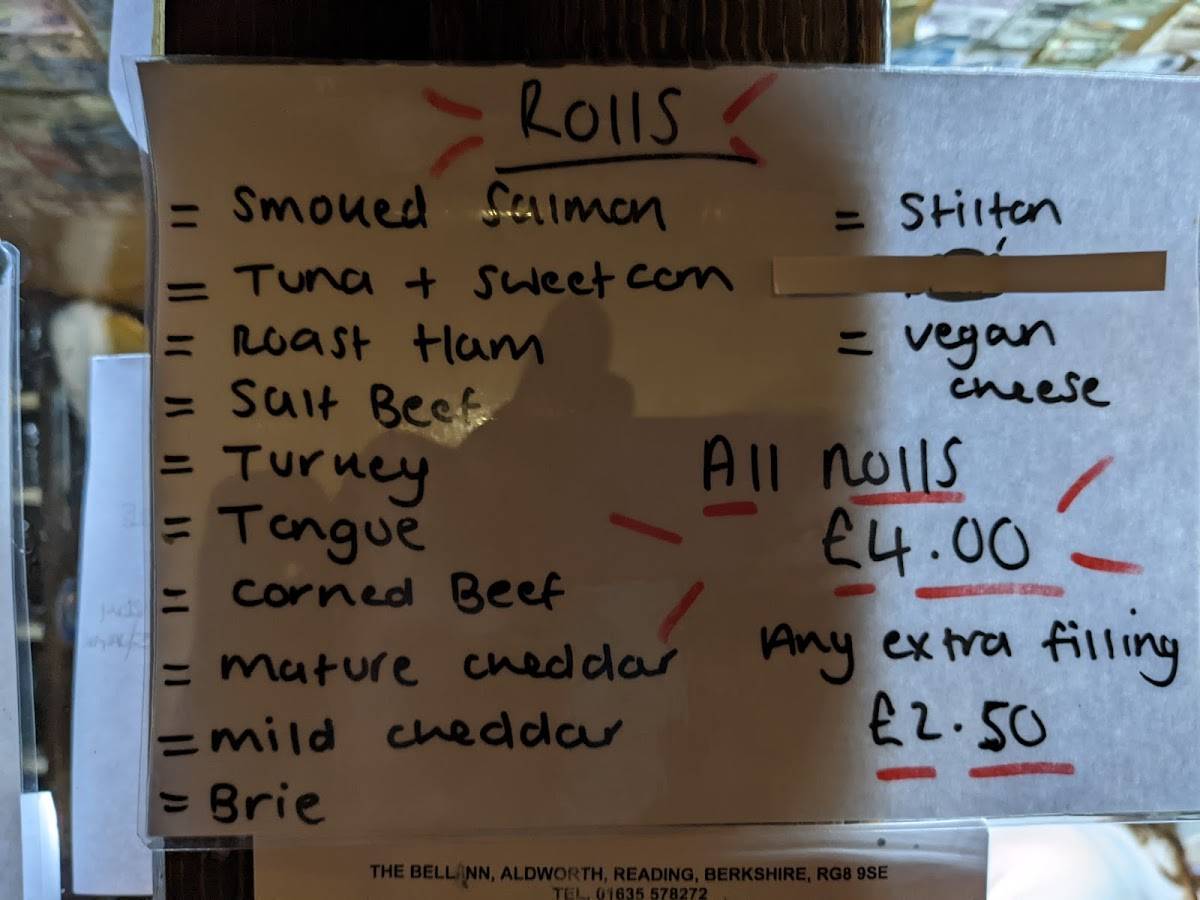 Rolls
= Smoked Salmon
= Tuna + Sweetcorn
= Roast Ham
= Salt Beef
= Turkey
= Tongue
= Corned Beef
= mature cheddar
= mild cheddar
= Brie
= Stilton
= vegan
cheese
All rolls
£4.00
Any extra filling
£2.50
THE BELL INN, ALDWORTH, READING, BERKSHIRE, RG8 9SE
TEL. 01635 578272